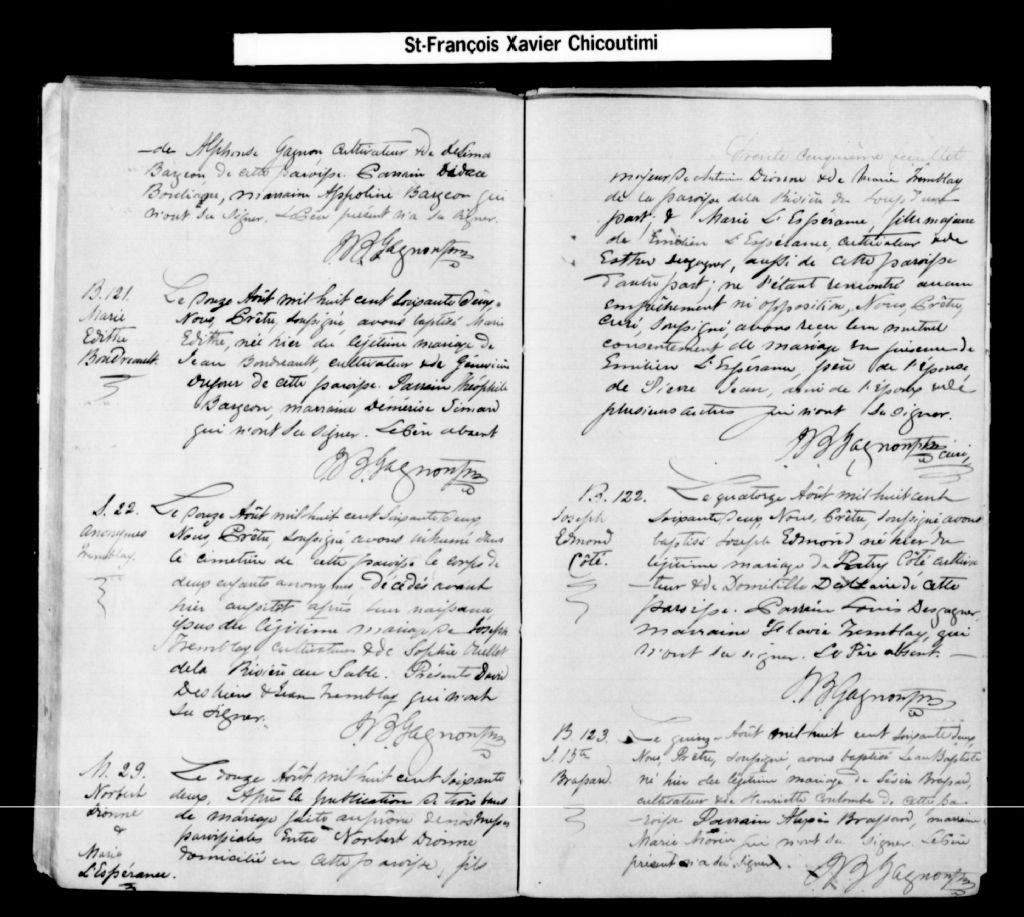 St-François Xavier Chicoutimi
de Alphonse Gagnon cultivateur & de Delima
Bargeon de cette paroisse. Parrain
Boulianne, marraine Appoline Bargeon qui
n'ont su signer. Le Père présent n'a su signer.
J B Gagnon ptre
B. 121.
Marie
Edithe
Boudreault.
Le douze Août mil huit cent soixante deux,
Nous, Prêtre, soussigné, avons baptisé Marie
Edithe, née hier du légitime mariage de
Jean Boudreault, cultivateur & de Généviève
Dufour de cette paroisse. Parrain Théophile
Bargeon, marraine Démérise Simard
qui n'ont su signer. Le Père absent
J B Gagnon ptre
S. 22.
Anonymes
Tremblay.
Le douze Août mil huit cent soixante deux,
Nous, Prêtre, soussigné avons inhumé dans
le cimetière de cette paroisse le corps de
deux enfants anonymes, décédés avant
hier aussitot après leur naissance
issus du légitime mariage de Joseph
Tremblay cultivateur & de Sophie Ouellet
de la Rivière au Sable. Présents David
Desbiens & Jean Tremblay qui n'ont
su signer.
J B Gagnon ptre
M. 29.
Norbert
Dionne
&
Marie
L'Espérance.
Le douze Août mil huit cent soixante
deux, Après la publication de trois bans
de mariage faite au prône de nos messes
paroissiales Entre Norbert Dionne
domicilié en cette paroisse, fils
Trente cinquième feuillet
majeur de Antoine Dionne & de Marie Tremblay
de la paroisse de la Rivière du Loup d'une
part; & Marie L'Espérance, fille majeure
de Emilien L'Espérance, cultivateur & de
Esther Desgagner, aussi de cette paroisse
d'autre part; ne s'étant rencontré aucun
empêchement ni opposition, Nous, Prêtre,
Curé, soussigné, avons reçu leur mutuel
consentement de mariage en présence de
Emilien L'Espérance, père de l'épouse
de Pierre Jean, ami de l'époux & de
plusieurs autres qui n'ont su signer.
J B Gagnon ptre curé,
B. 122.
Joseph
Edmond
Côté.
Le quatorze Août mil huit cent
soixante deux, Nous, Prêtre, soussigné avons
baptisé Joseph Edmond né hier du
légitime mariage de Patry Côté cultiva
-teur & de Domitille Dallaire de cette
paroisse. Parrain Louis Desgagner
marraine Flavie Tremblay, qui
n'ont su signer. Le Père absent.
J B Gagnon ptre
B. 123
J. Bte
Brassard.
Le quinze Août mil huit cent soixante deux,
Nous, Prêtre, soussigné, avons baptisé Jean Baptiste
né hier du légitime mariage de Brassard,
cultivateur & de Henriette Coulombe de cette pa-
-roisse Parrain Alexis Brassard, marraine
Marie Morin qui n'ont su signer. Le Père
présent n'a su signer.
J B Gagnon ptre